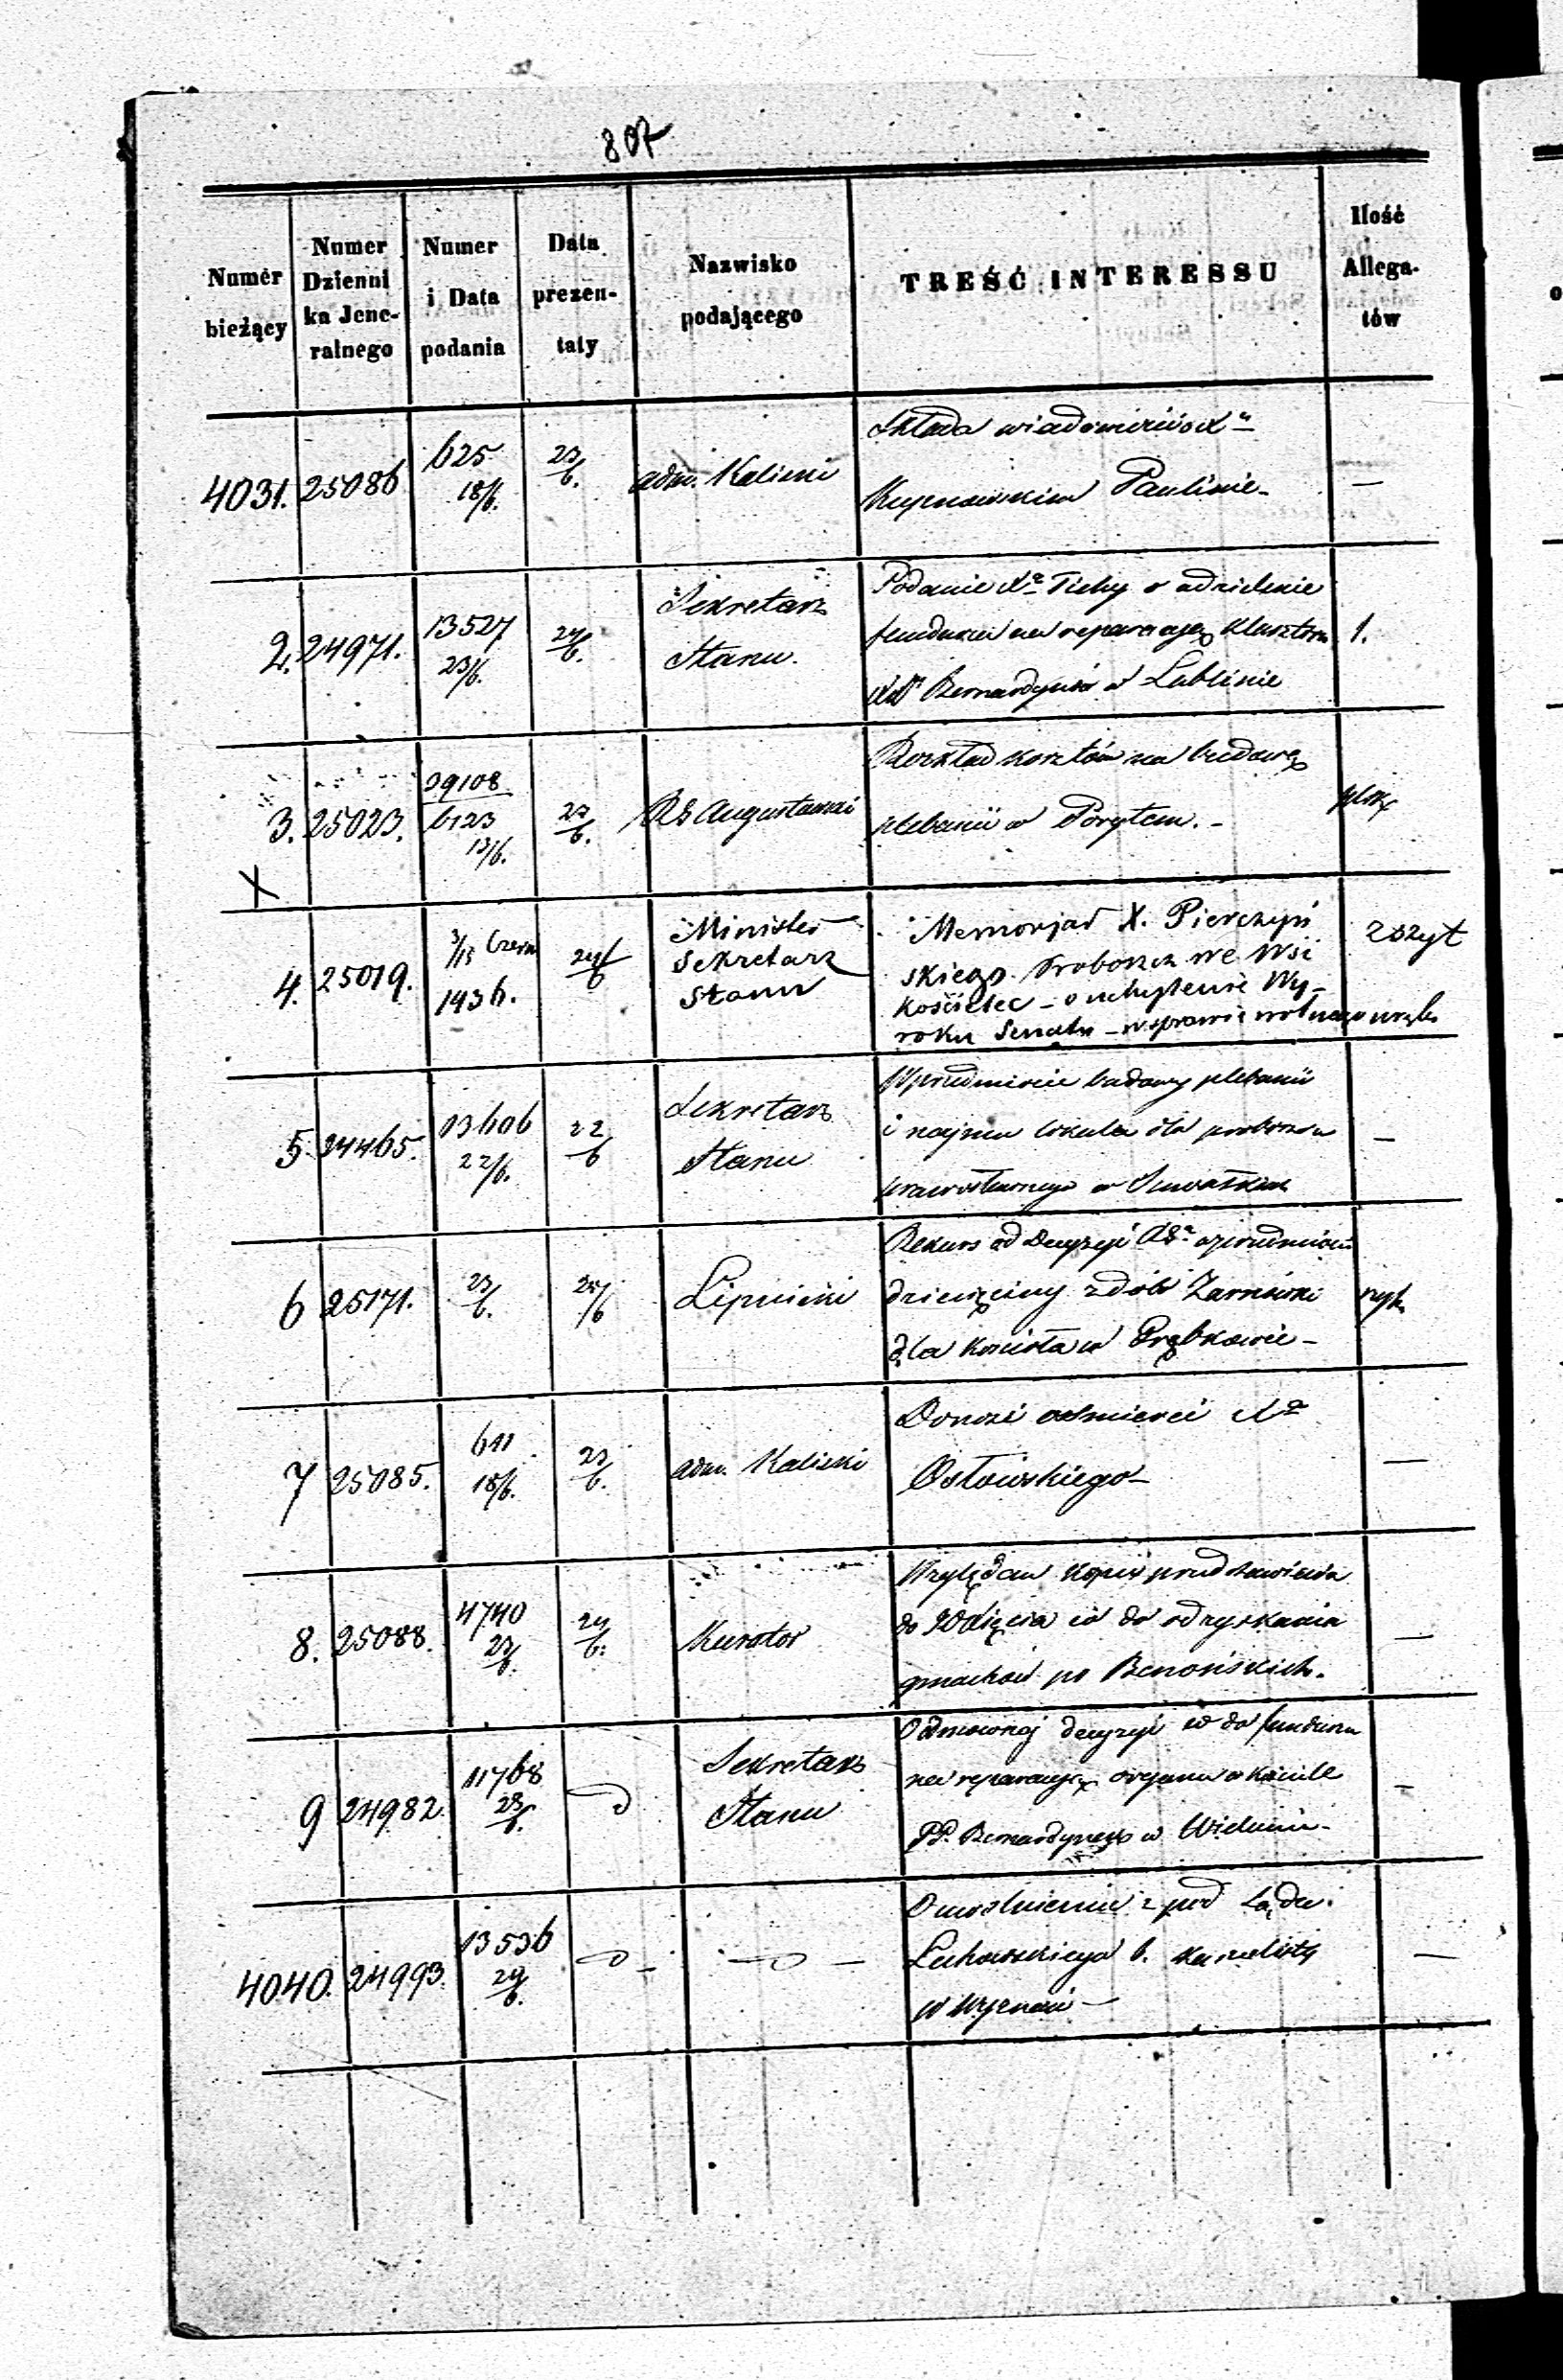 807
Numer bieżący
Numer Dzienni ka Jene- ralnego
Numer i Data podania
Data prezen- taty
Nazwisko podającego
TREŚĆ INTERESSU
Ilość Allega- tów
4031. 25086 625 18/6. 23/6. adm. Kaliski
Składa wiadomość o Xu
Paulinie -
—
2. 24971. 13527 23/6. 24/6. Sekretarz Stanu.
Podanie Xa Tichy o udzielenie
funduszu na reparacyę klasztoru
XX Bernardynów w Lublinie
1.
3. 25023. 39108 6123 13/6. 23/6. RG Augustowski
Rozkład kosztów na budowę
plebanii w Porytem. -
X
4. 25019. 3/15 Czerw 1436. 24/6 Minister Sekretarz Stanu
Memorjał X. Pierczyń
skiego Proboszcza we Wsi
Kościelec - o uchylenie Wy-
roku Senatu - w sprawie wolnego wrębu
zszyt
5. 24465. 13606 22/6. 22/6 Sekretarz Stanu
W przedmiocie budowy plebanii
i najmu lokalu dla proboszcza
prawosławnego w Suwałkach
—
6 25171. 23/6. 24/6 Lipnicki
Rekurs od decyzyi RGo w przedmiocie
dziesięciny z dóbr Żarnówki
dla kościoła w Grębkowie -
7 25085. 611 18/6. 23/6. adm. Kaliski
Donosi o śmierci Xa
Osłowskiego -
—
8. 25088. 4740 23/6. 24/6. Kurator
Względem kopii przedstawienia
do Xięcia co do odzyskania
gmachów po Benońskich.
—
9 24982. 11768 23/6. Sekretarz Stanu
Odmownej decyzyi co do funduszu
na reparacyę organu w kościele
PP. Bernardynek w Wieluniu -
—
4040. 24993. 13536 29/6. — —
O uwolnieniu z pod Sądu
b. kancelisty
—